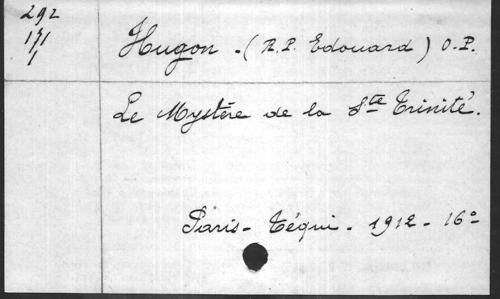 292
171
1
Hugon - (R.P. Edouard) O.P.
Le Mystère de la Ste Trinité.
Paris - Téqui - 1912 - 16°